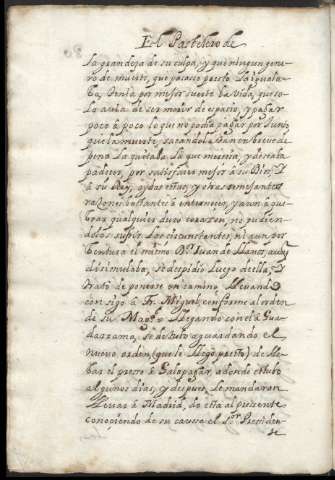 El Pastelero de
la grandeza de su culpa, y que ningun gene
ro de muerte, que padeciese puesto la iguala
ba, tenia por mejor suerte la vida, que so
lo avia de ser morir de espacio, y pagar
poco à poco lo que no podia pagar por junto
que la muerte, sacandola tan en breve de
pena la quitaba la que merecia, y deseaba
padecer, por satisfacer mejor à su Dios, y
à su Rey, oydas estas, y otras semejantes
razones bastantes à enternecer, y aun à que
brar qualquier duro corazon, no pudien
dolo sufrir los circunstantes, ni aun por
bentura el mismo Dn. Juan de Llanos, aunq
disimulaba, se despidio luego de ella, y
trató de ponerse en camino, llevando
consigo à Fr. Miguel, conforme al orden
de su Magd. y llegando con el à Gua
darrama, se detuvo aguardando el
nuevo orden, (que le llegò presto) de lle
bar el preso à Galapagar, adonde estubo
algunos dias, y despues le mandaron
llevar à Madrid, do esta al presente
conociendo de su causa el Sor. Presiden
te